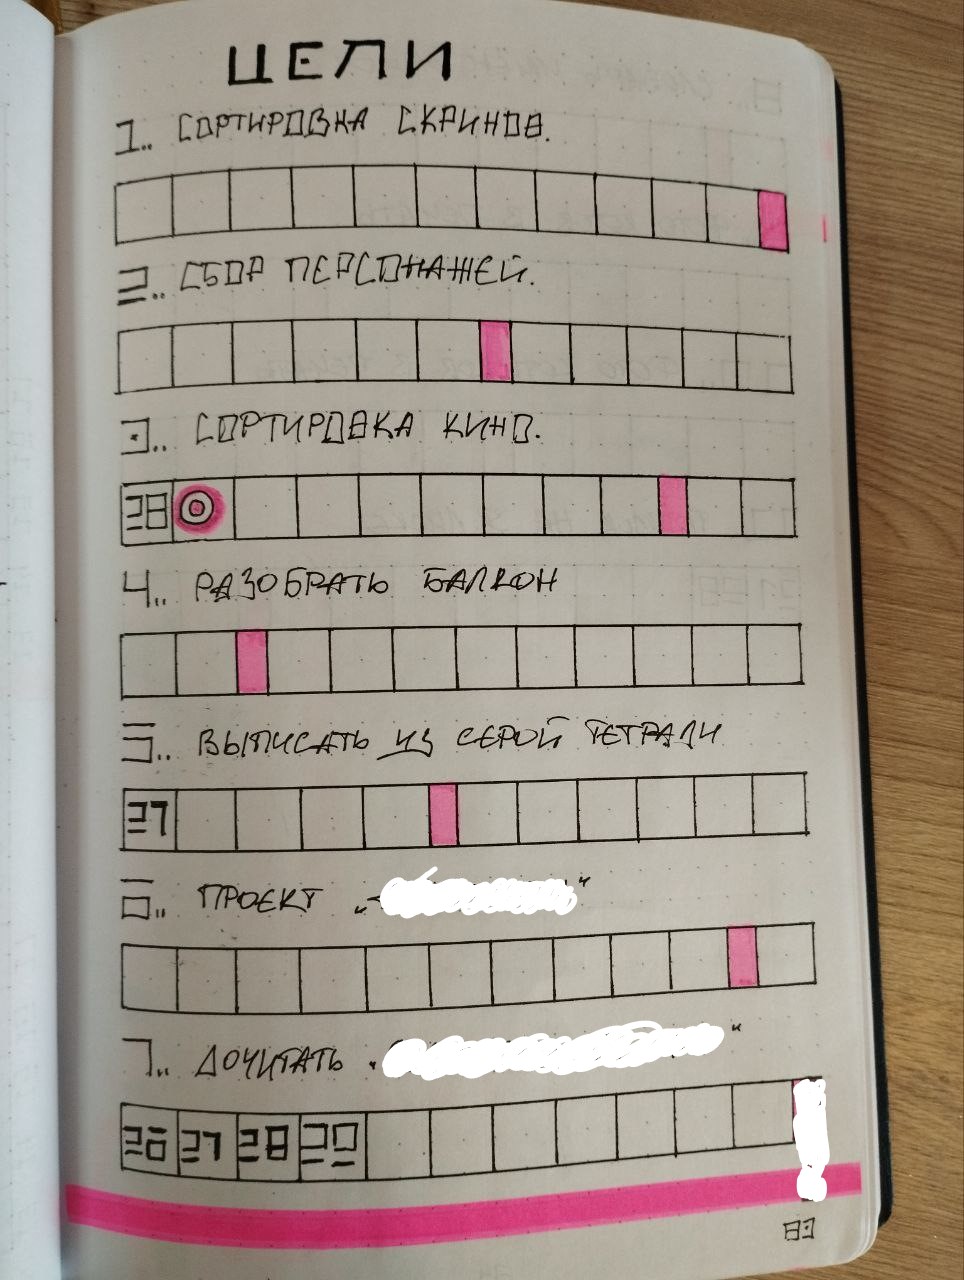 ЦЕЛИ
1.. СОРТИРОВКА СКРИНОВ.
2.. СБОР ПЕРСОНАЖЕЙ.
3.. СОРТИРОВКА КИНО.
28
4.. РАЗОБРАТЬ БАЛКОН
5.. ВЫПИСАТЬ ИЗ СЕРОЙ ТЕТРАДИ
27
6.. ПРОЕКТ „ “
7.. ДОЧИТАТЬ „ “
26 27 28 29
83